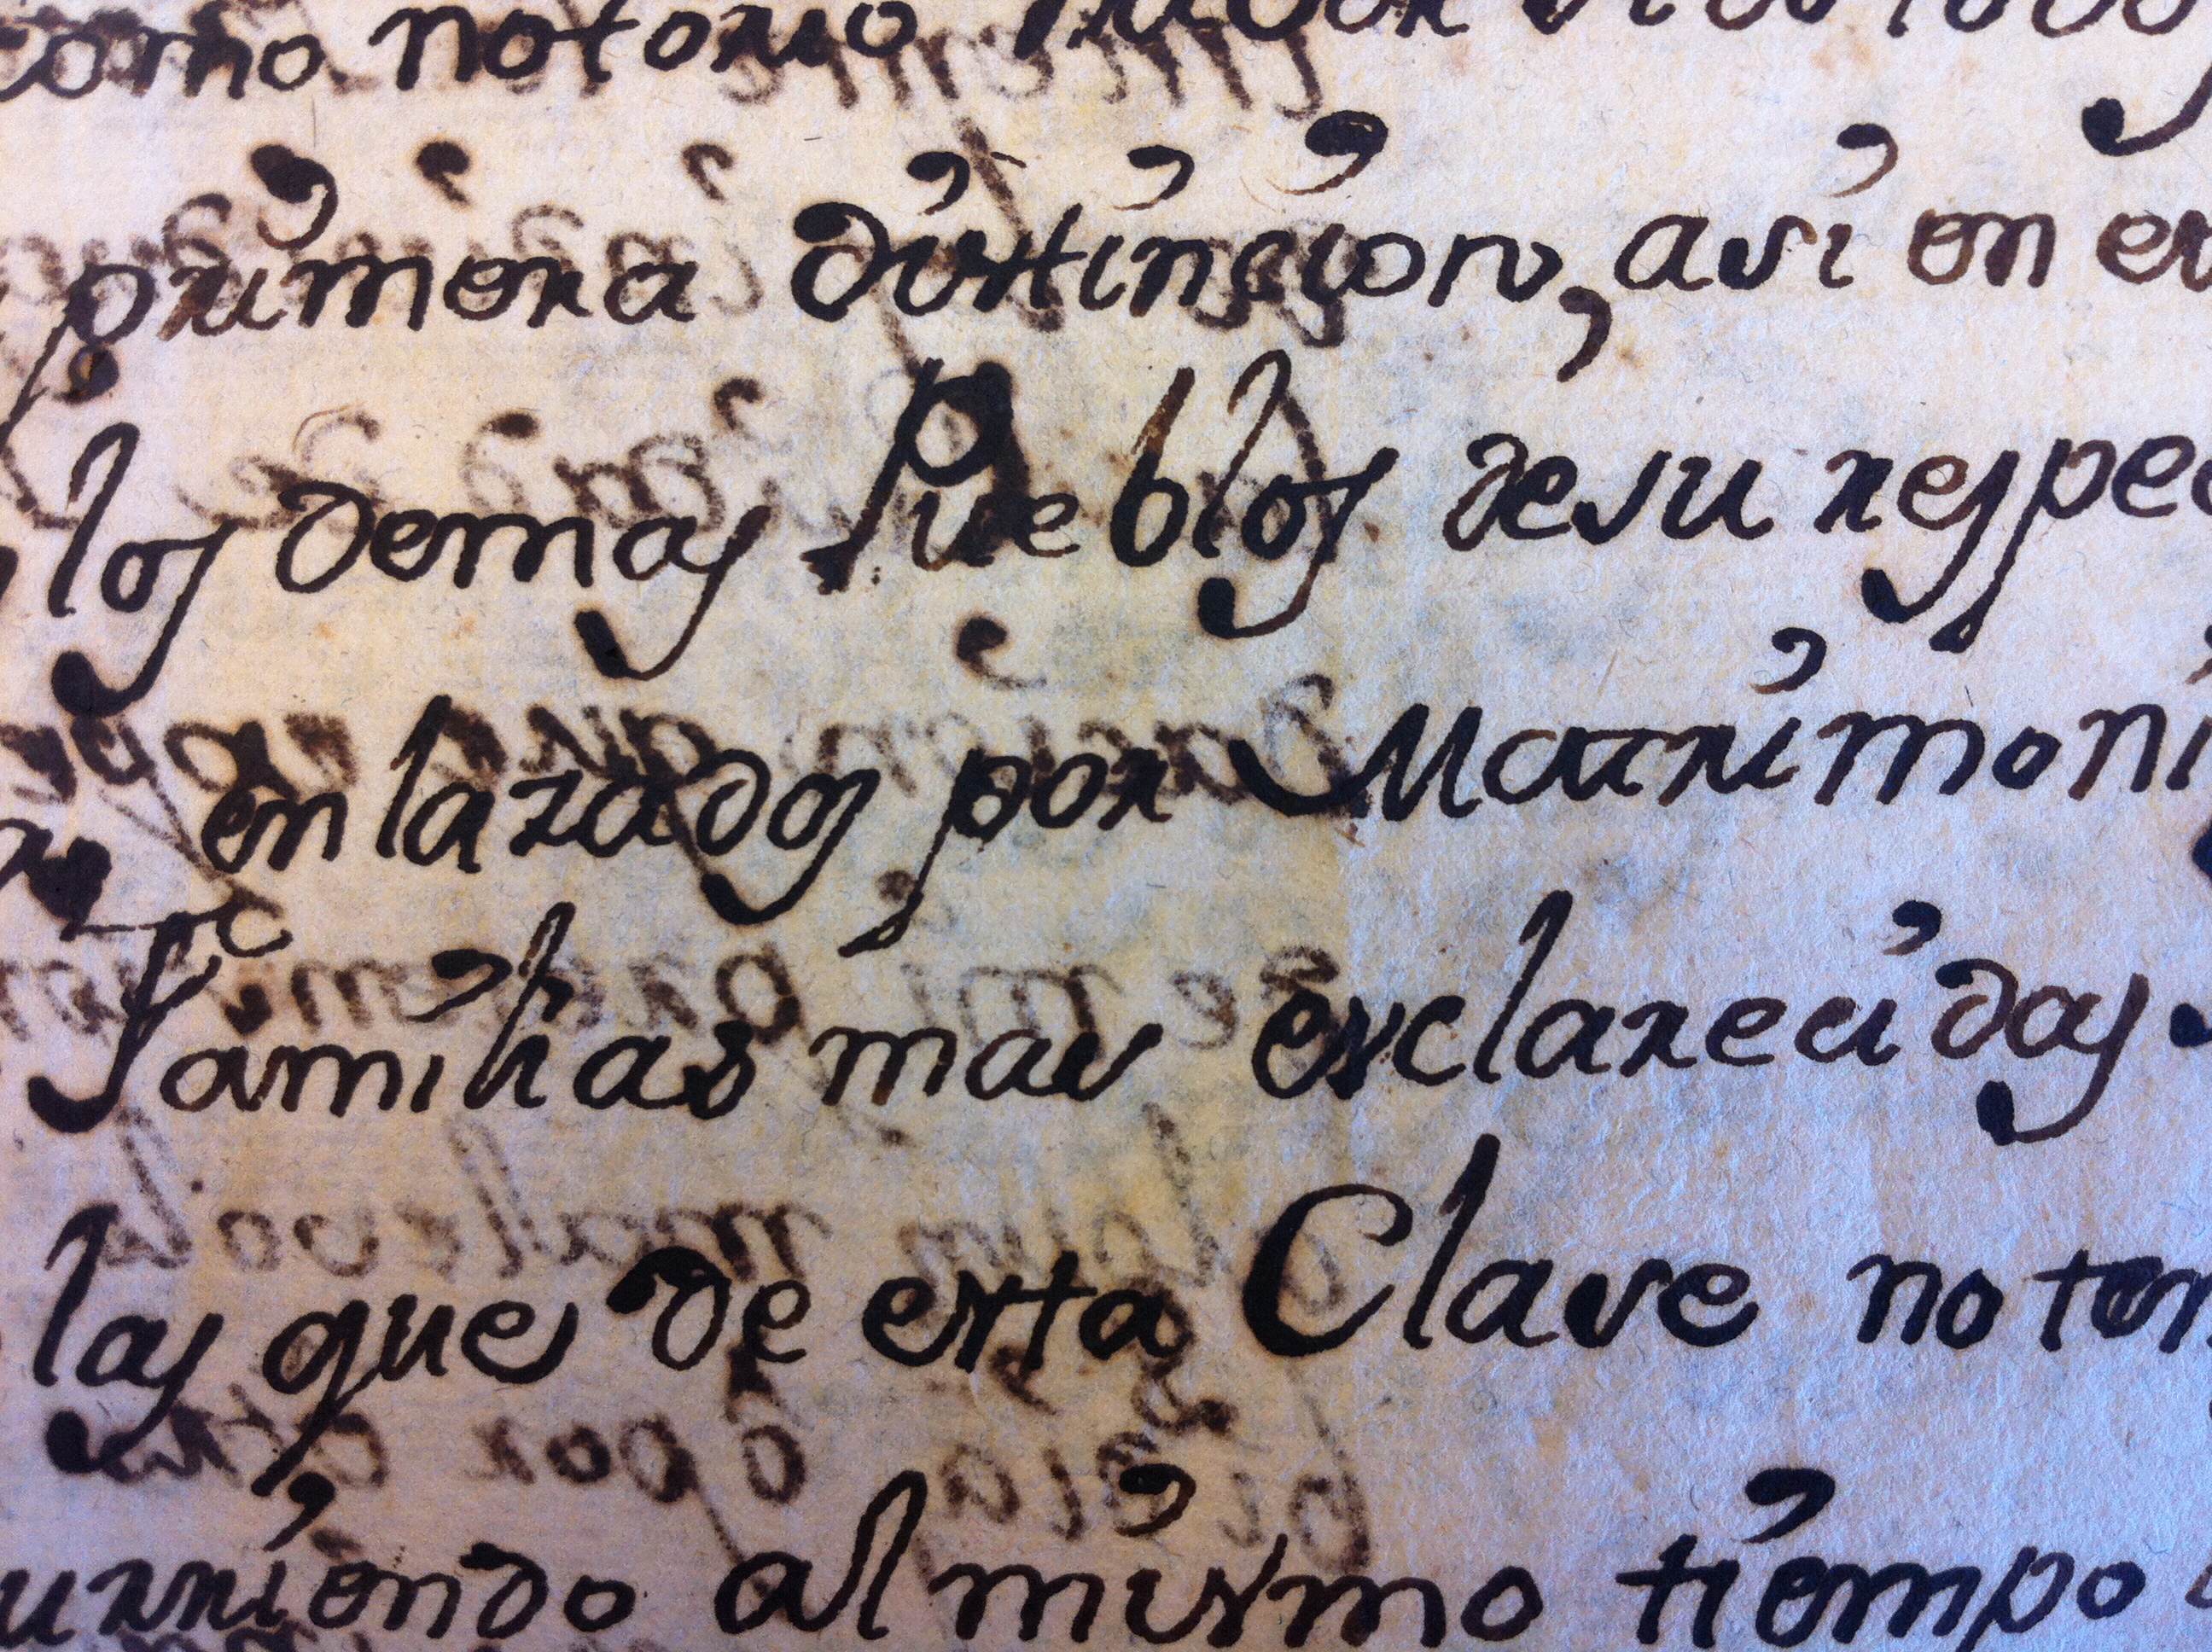 como notorio
primera distincion, asi en es
los demas Pueblos de su respec
enlazados por Matrimoni
Familias mas esclarecidas.
las que de esta Clase no ten
urriendo al mismo tiempo